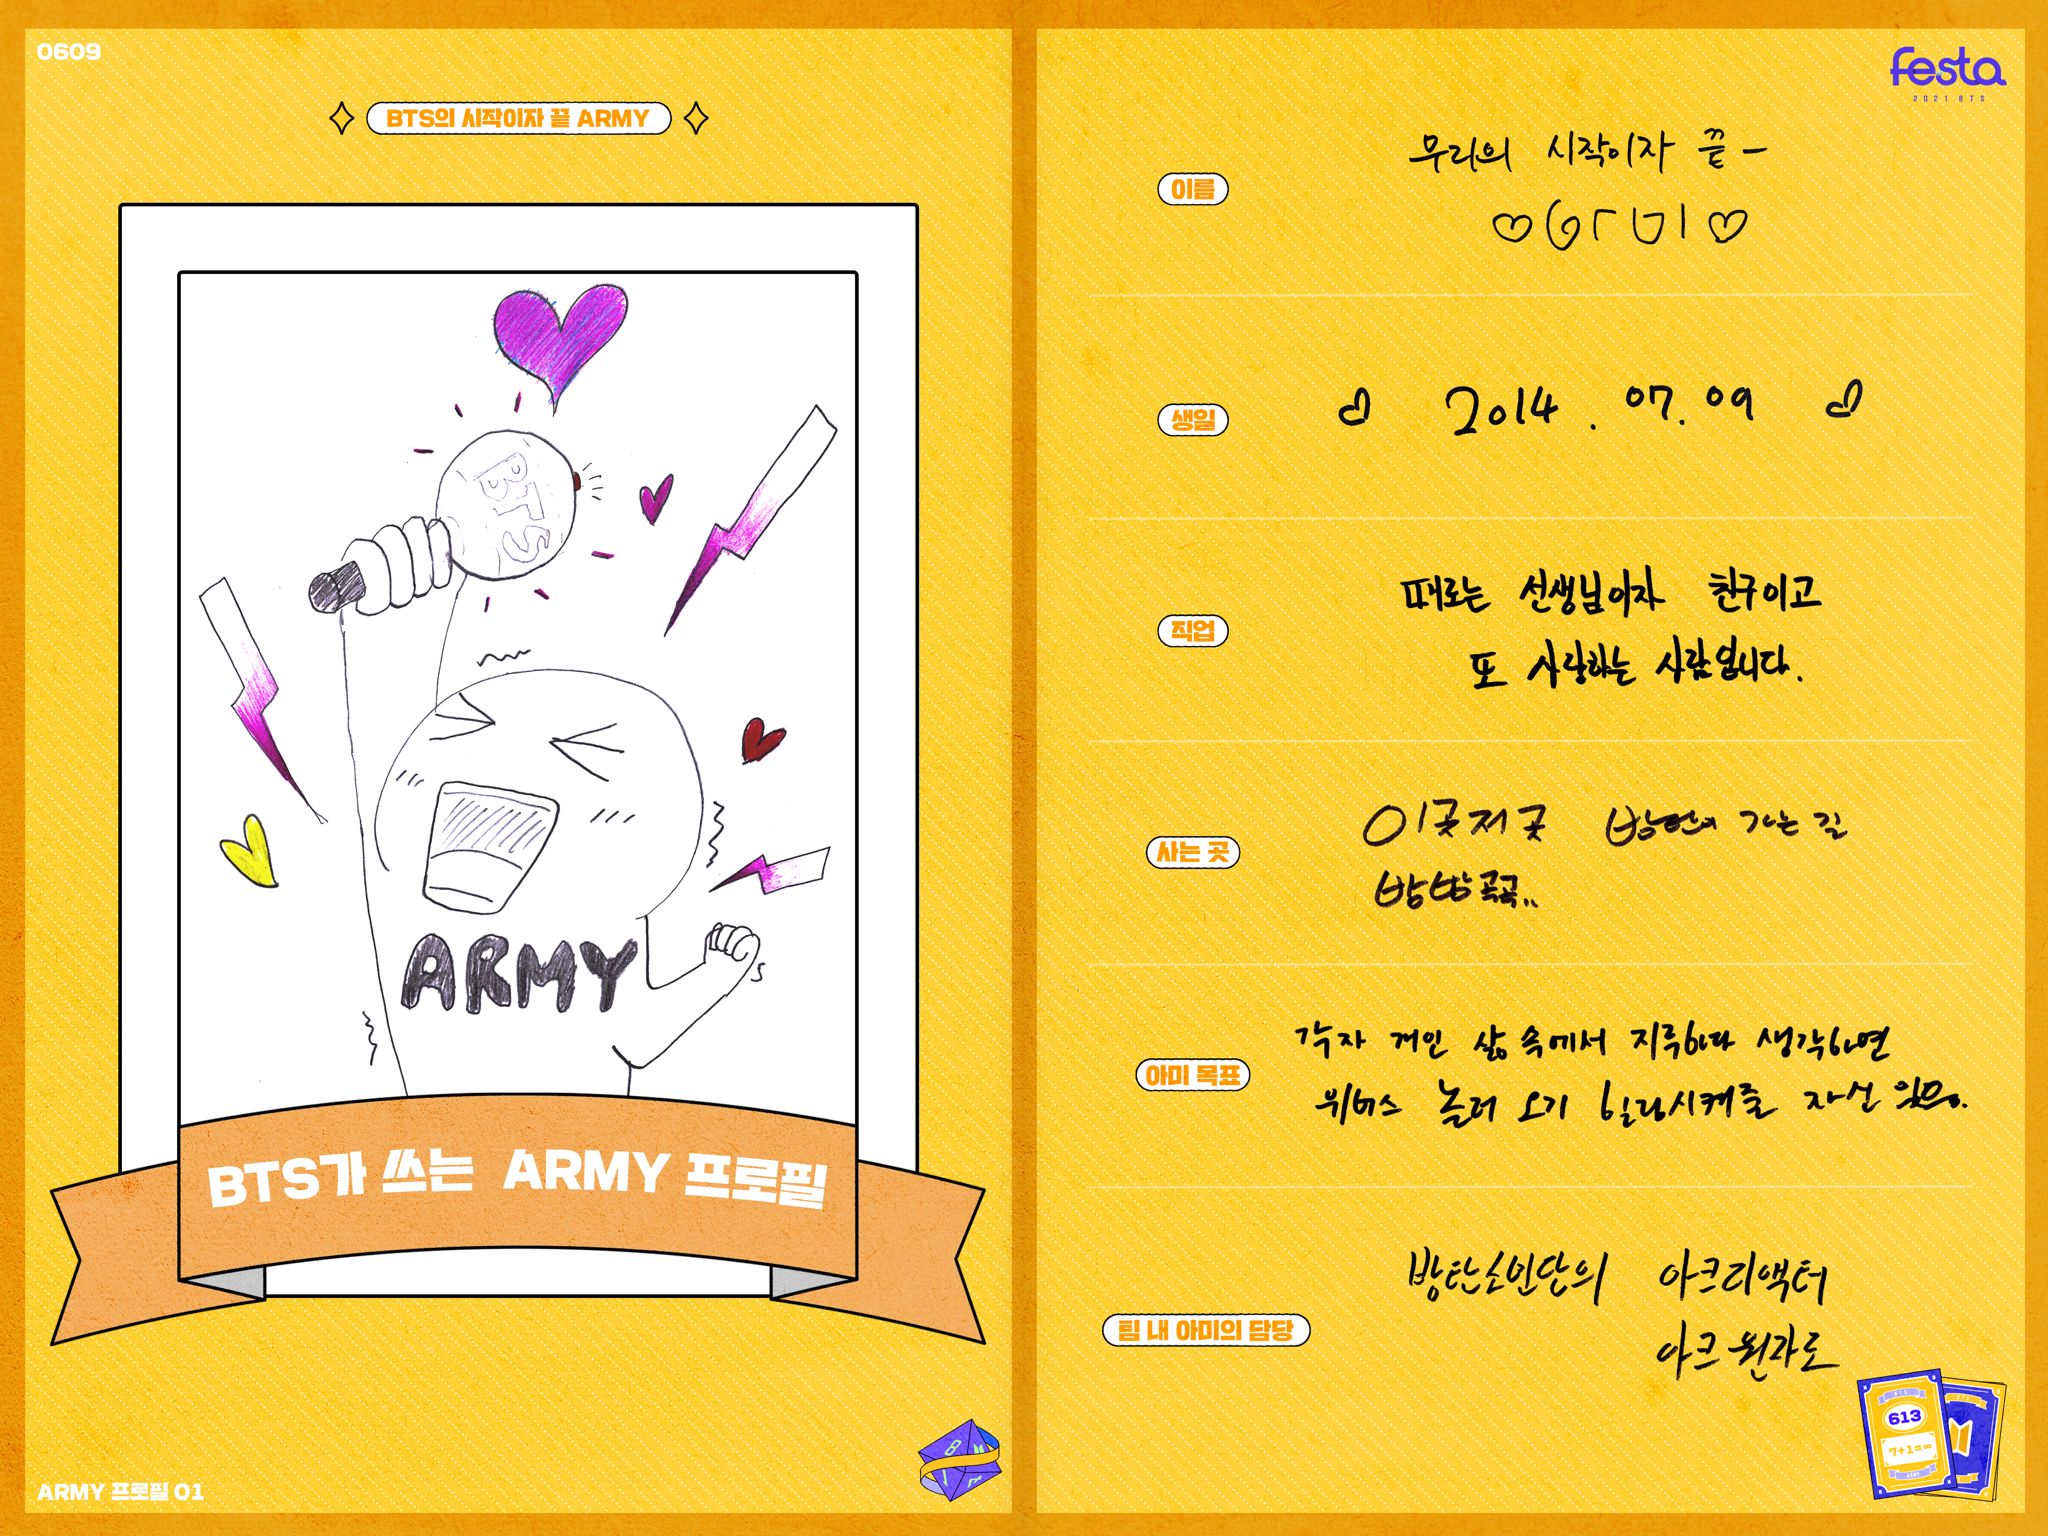 0609
BTS의 시작이자 끝 ARMY
BTS
ARMY
BTS가 쓰는 ARMY 프로필
ARMY 프로필 01
festa
2021 BTS
이름
우리의 시작이자 끝 -
♡아미♡
생일
♡ 2014. 07. 09 ♡
직업
때로는 선생님이자 친구이고
또 사랑하는 사람입니다.
사는 곳
이곳저곳 방탄이 가는 길
방방곡곡..
아미 목표
각자 개인 삶 속에서 지루하다 생각하면
위버스 놀러 오기 힐링시켜줄 자신 있음.
팀 내 아미의 담당
방탄소년단의 아크리액터
아크 원자로
613
7+1=∞
ARMY